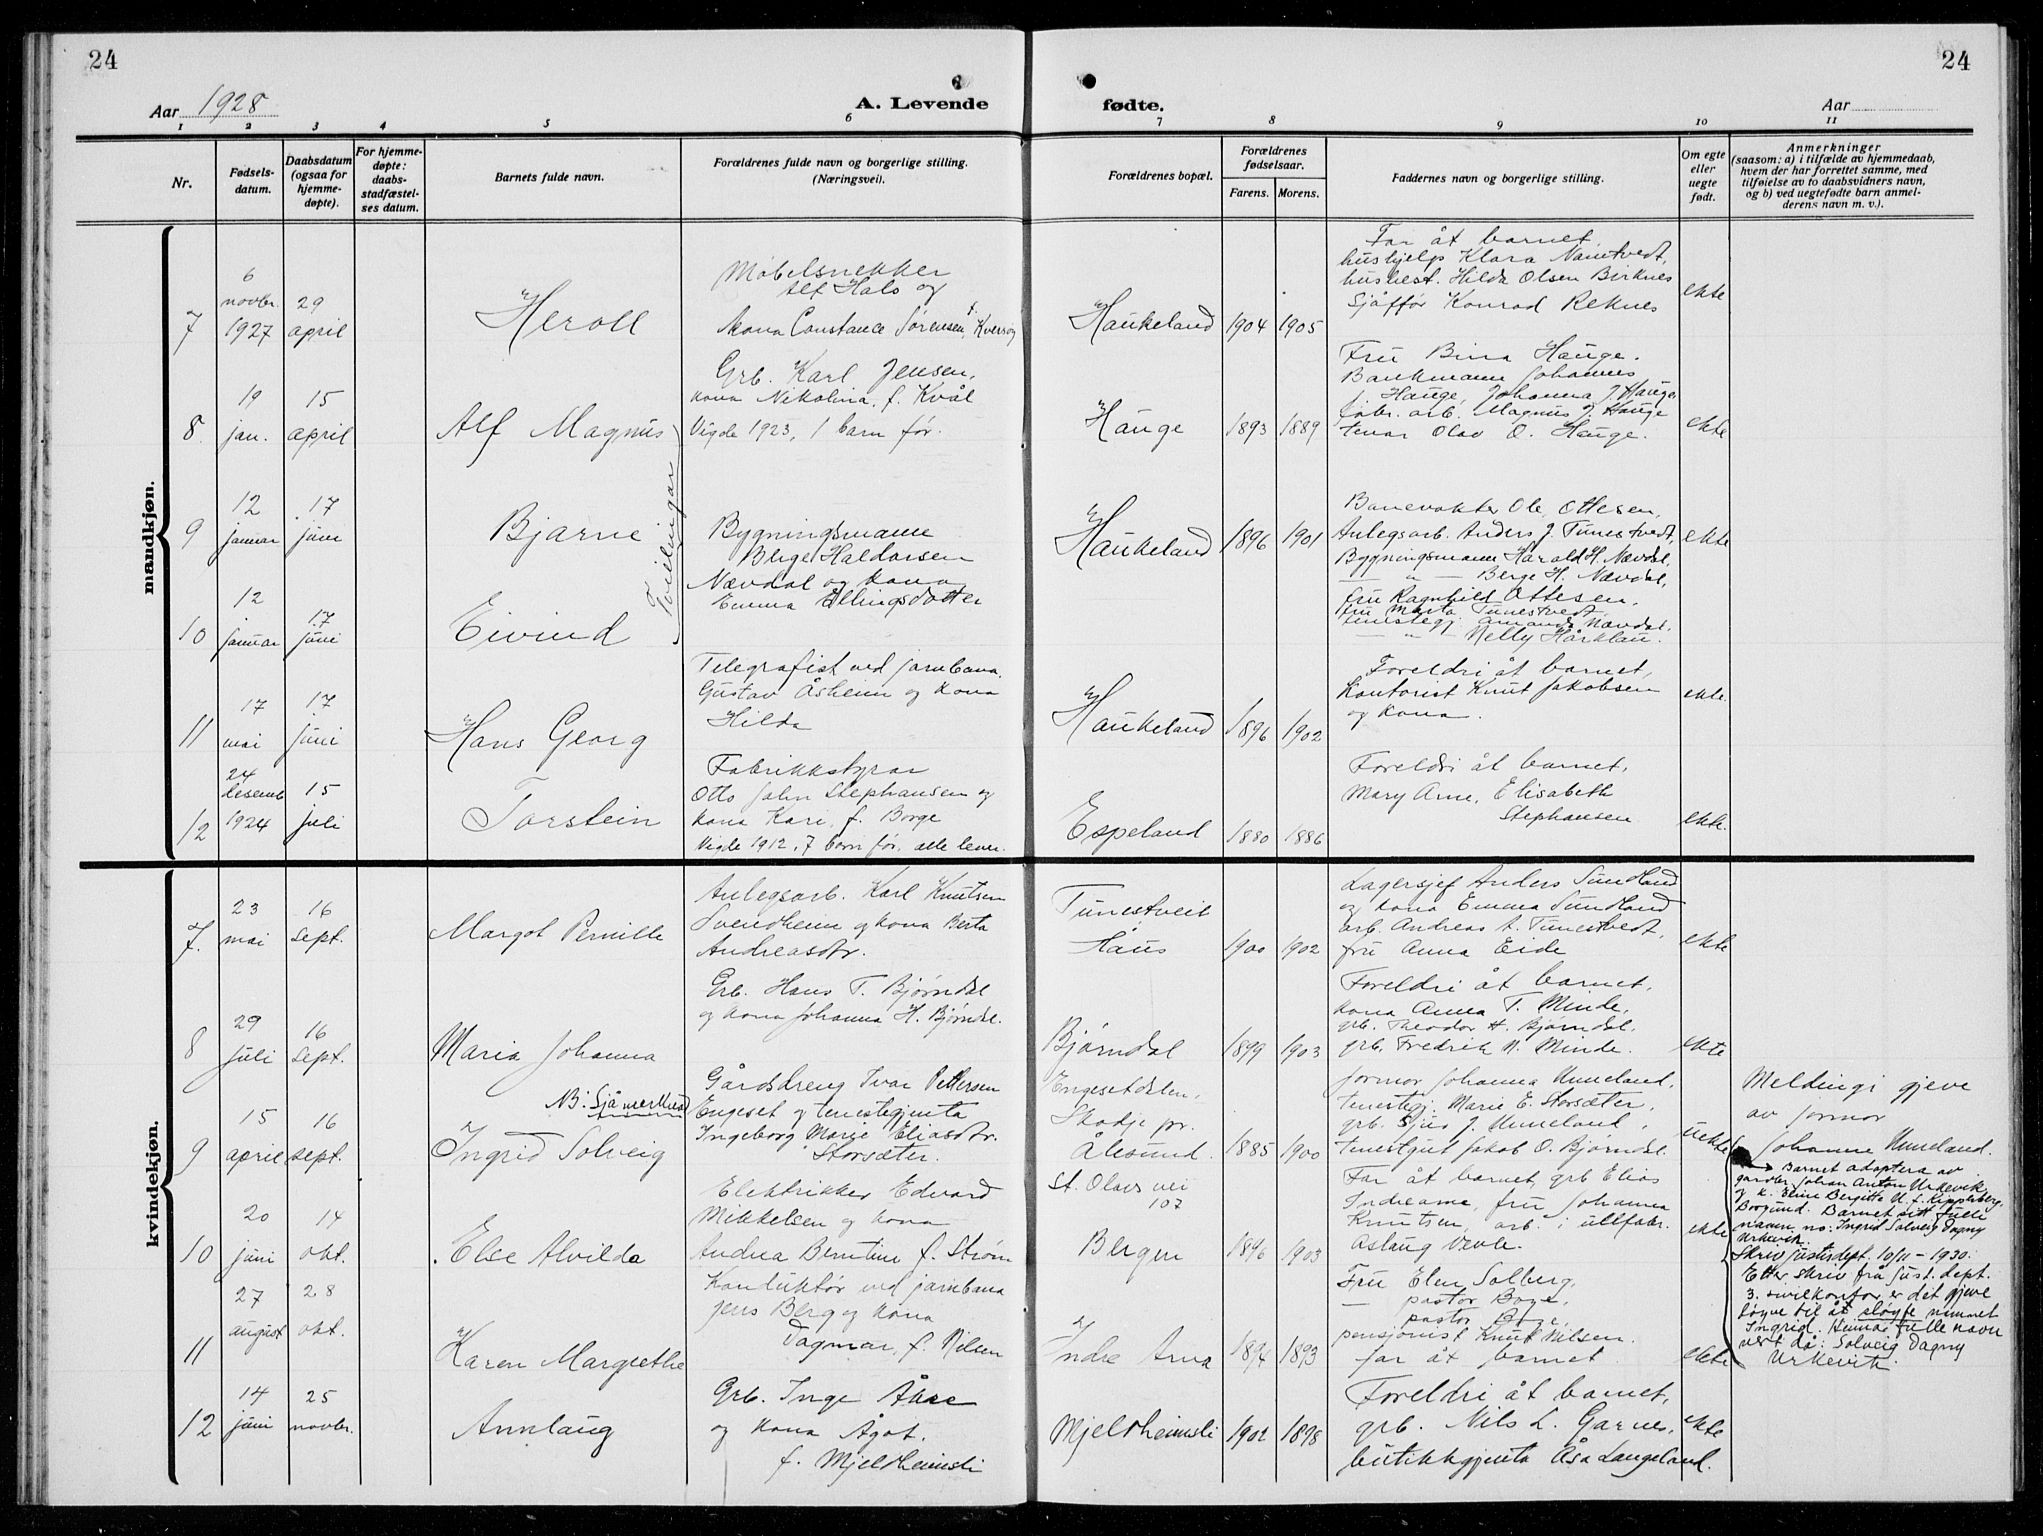 24
24
Aar 1928
A. Levende
fødte.
Aar
1 2 3 4 5 6 7 8 9 10 11
Nr.
Fødsels-
datum.
Daabsdatum
(ogsaa for
hjemme-
døpte).
For hjemme-
døpte:
daabs-
stadfæstel-
ses datum.
Barnets fulde navn.
Forældrenes fulde navn og borgerlige stilling.
(Næringsvei).
Forældrenes bopæl.
Forældrenes
fødselsaar.
Farens. Morens.
Faddernes navn og borgerlige stilling.
Om egte
eller
uegte
født.
Anmerkninger
(saasom: a) i tilfælde av hjemmedaab,
hvem der har forrettet samme, med
tilføielse av to daabsvidners navn,
og b) ved uegtefødte barn anmel-
derens navn m. v.).
mandkjøn.
7
6
novbr.
1927
29
april
Heroll
Møbelsnekker
Alf Hals og
kona Constance Sørensen, f. Kversøy
Haukeland
1904
1905
Far åt barnet,
hushjelp Klara Namtvedt,
husbest. Hilda Olsen Birknes
Sjåffør Konrad Reknes
ekte
8
19
jan.
15
april
Alf Magnus
Grb. Karl Jensen,
kona Nikolina, f. Kvål
Vigde 1923, 1 barn før.
Hauge
1893
1889
Fru Bina Hauge.
Bankmann Johannes
J. Hauge, Johanna J. Hauge,
fabr. arb. Magnus J. Hauge
tenar Olav O. Hauge.
ekte
9
12
januar
17
juni
Bjarne
Tvillingar
Bygningsmann
Berge Haldorsen
Nævdal og kona
Emma Ellingsdotter
Haukeland
1896
1901
Banevokter Ole Ottesen,
Anlegsarb. Anders J. Tunestvedt,
Bygningsmann Harald H. Nævdal,
— " — Berge H. Nævdal,
fru Ragnhild Ottesen,
fru Marta Tunestvedt,
tenestegj. Amanda Nævdal.
— " — Nelly Hårklau.
ekte
10
12
januar
17
juni
Eivind
11
17
mai
17
juni
Hans Georg
Telegrafist ved jarnbana
Gustav Åsheim og kona
Hilda
Haukeland
1896
1902
Foreldri åt barnet,
Kontorist Knut Jakobsen
og kona.
ekte.
12
24
desemb
1924
15
juli
Torstein
Fabrikkstyrar
Otto John Stephansen og
kona Kari, f. Borge
Vigde 1912, 7 born før, alle lever.
Espeland
1880
1886
Foreldri åt barnet,
Mary Arne, Elisabeth
Stephansen
ekte.
kvindekjøn.
7.
23
mai
16
sept.
Margot Pernille
Anlegsarb. Karl Knutsen
Svendheim og kona Berta
Andreasdtr.
Tunestveit
Haus
1900
1902
Lagersjef Anders Sundland
og kona Emma Sundland
arb. Andreas A. Tunestvedt,
fru Anna Eide
ekte
8
29
juli
16
sept.
Maria Johanna
Grb. Hans T. Bjørndal
og kona Johanna H. Bjørndal.
Bjørndal
1899
1903
Foreldri åt barnet,
kona Anna T. Minde,
grb. Theodor H. Bjørndal.
grb. Fredrik N. Minde.
ekte
9
15
april
16
sept.
NB. Sjå merknad
Ingrid Solveig
Gårdsdreng Ivar Pettersen
Engeset og tenestegjenta
Ingeborg Marie Eliasdtr.
Storsæter.
Engesetdalen,
Skodje pr.
Ålesund.
1885
1900
formor Johanna Unneland,
tenestegj. Marie E. Storsæter,
grb. Sjus J. Unneland,
tenestgut Jakob O. Bjørndal.
uekte
Meldingi gjeve
av formor
Johanne Unneland.
→ Barnet adoptera av
gardbr. Johan Anton Urkevik
og k. Eline Bergitte U. f. Kipperberg,
Borgund. Barnet sitt fulle
namn no: Ingrid Solveig Dagny
Urkevik.
Skriv Justisdept. 10/11 - 1930.
Etter skriv frå Just. dept.
3. sivilkontor er det gjeve
løyve til åt sløyfe namnet
Ingrid. Hennar fulle navn
vert då: Solveig Dagny
Urkevik.
10
20
juni
14
okt.
Else Alvilda
Elektrikker Edvard
Mikkelsen og kona
Andrea Berntine f. Strøm
St. Olavs vei
107
Bergen
1896
1903
Far åt barnet, grb Elias
Indreane, fru Johanna
Knutsen, arb. i ullfabr.
Aslaug Vevle.
ekte
11
27
august
28
okt.
Karen Margrethe
Konduktør ved jarnbana
Jens Berg og kona
Dagmar, f. Nilsen
Indre Arna
1894
1893
Fru Elen Solberg,
— pastor Boge,
pastor Boge,
pensjonist Knut Nilsen.
far åt barnet
ekte
12
14
juni
25
novbr.
Annlaug
Grb. Inge Åkre
og kona Ågot,
f. Mjeldheimsli
Mjeldheimsli
1902
1898
Foreldri åt barnet,
grb. Nils L. Garnes,
butikkgjenta Åsa Langeland.
ekte